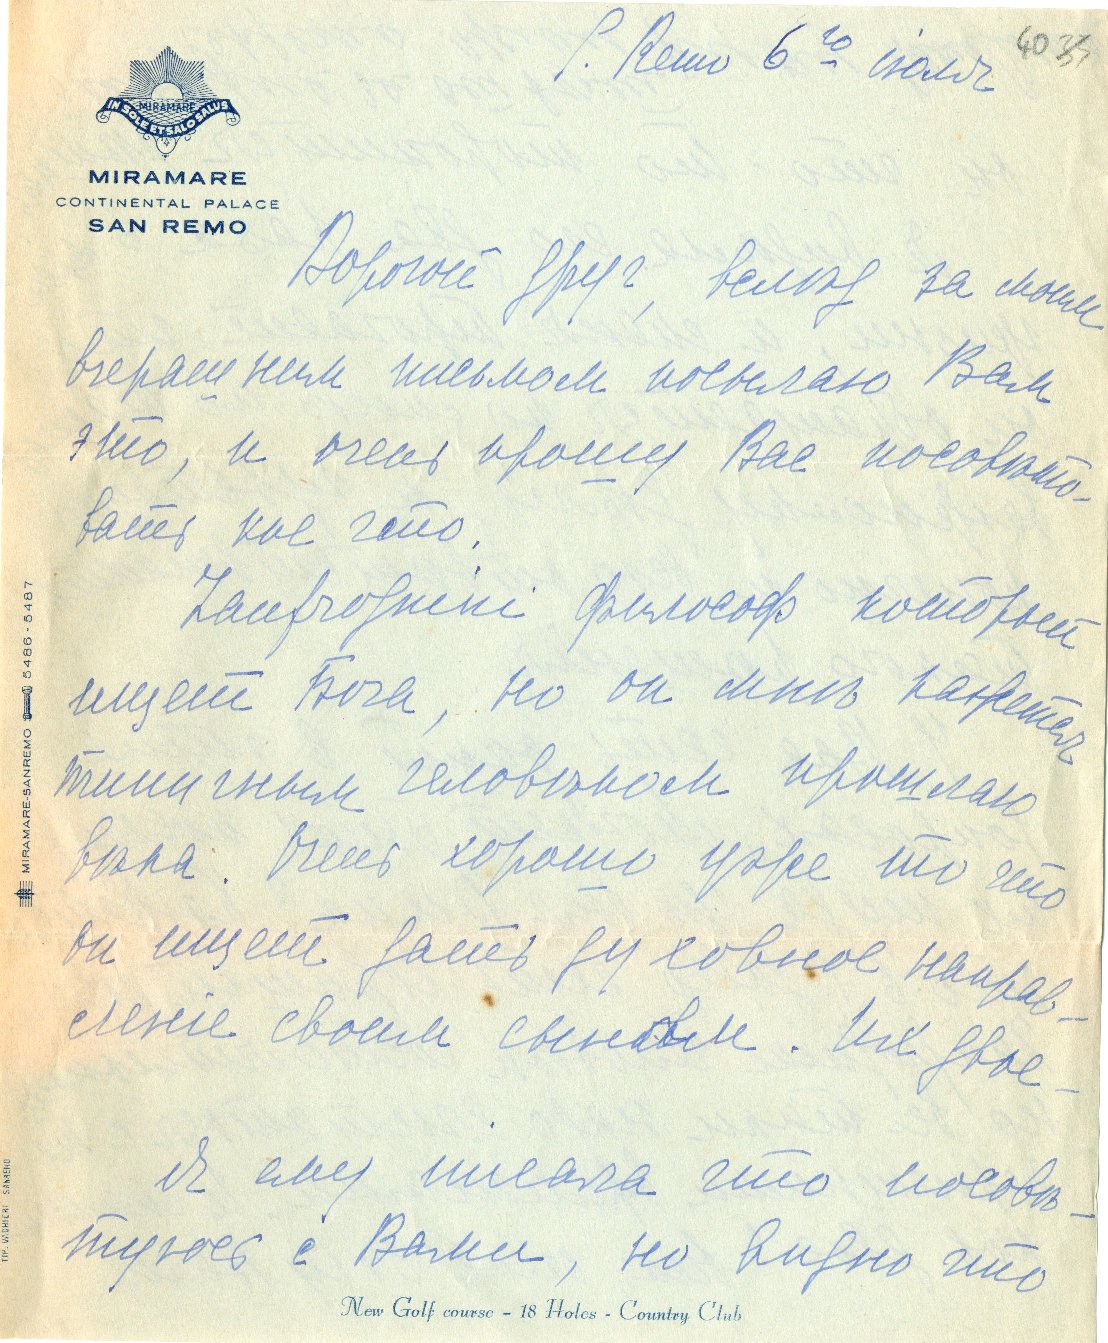 S. Remo 6го июля
4035
MIRAMARE
IN SOLE ET SALO SALUS
MIRAMARE
CONTINENTAL PALACE
SAN REMO
Дорогой друг, вслѣд за моим
вчерашним письмом посылаю Вам
это, и очень прошу Вас посовѣто-
вать кое что.
Zanfrognini философ который
ищет Бога, но он мнѣ кажется
типичным человѣком прошлаго
вѣка. Очень хорошо уже то что
он ищет дать духовное направ-
леніе своим сыновьям. Их двое_
Я ему писала что посовѣ-
туюсь с Вами, но видно что
MIRAMARE-SANREMO 5486-5487
TIP. VACHIERI SANREMO
New Golf course - 18 Holes - Country Club